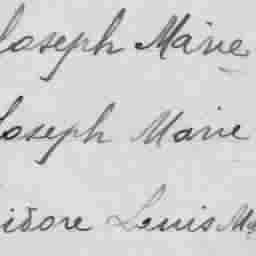 Joseph Marie
Joseph Marie
isidore Louis Ma